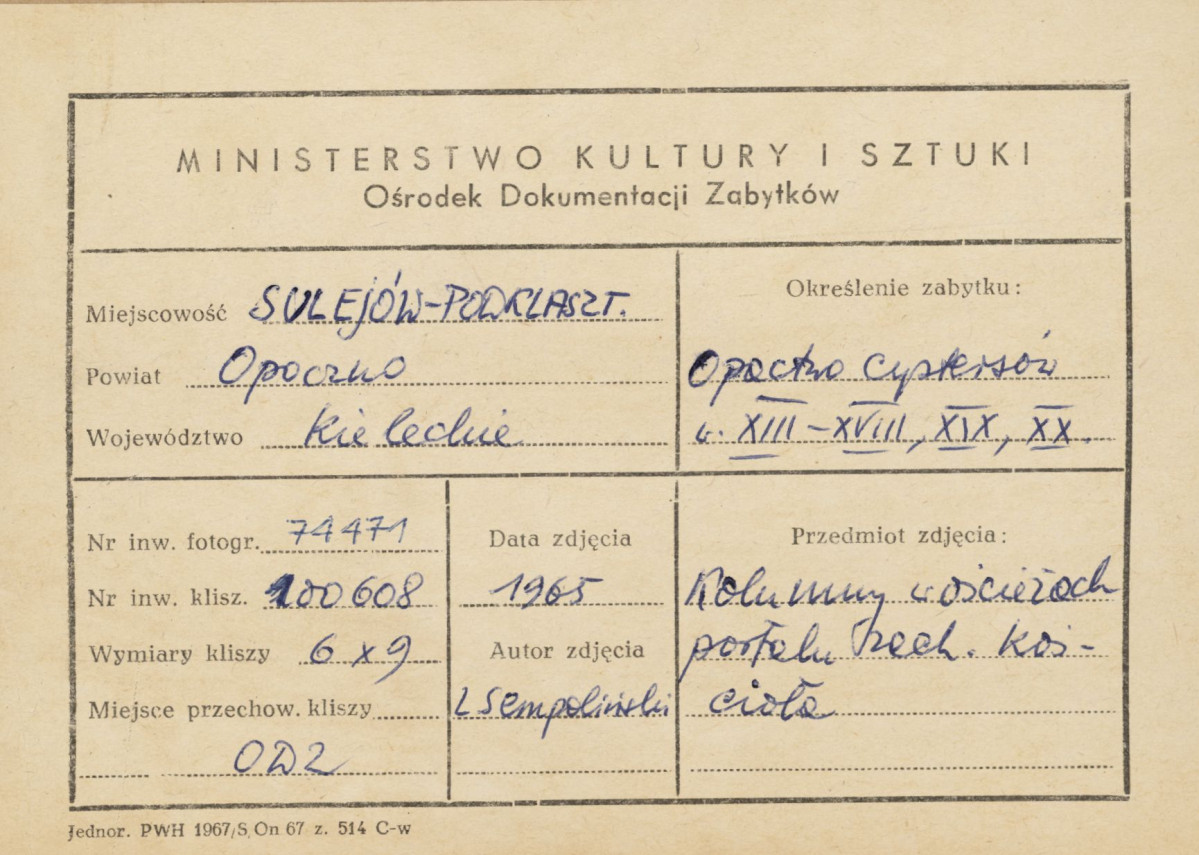 MINISTERSTWO KULTURY I SZTUKI
Ośrodek Dokumentacji Zabytków
Miejscowość SULEJÓW-PODKLASZT.
Powiat Opoczno
Województwo Kieleckie
Określenie zabytku:
Opactwo Cystersów
w. XIII-XVIII, XIX, XX.
Nr inw. fotogr. 74471
Nr inw. klisz. 100608
Wymiary kliszy 6x9
Miejsce przechow. kliszy
ODZ
Data zdjęcia
1965
Autor zdjęcia
L Sempoliński
Przedmiot zdjęcia:
Kolumny w ościeżach
portalu zach. koś-
cioła
Jednor. PWH 1967/S On 67 z. 514 C-w